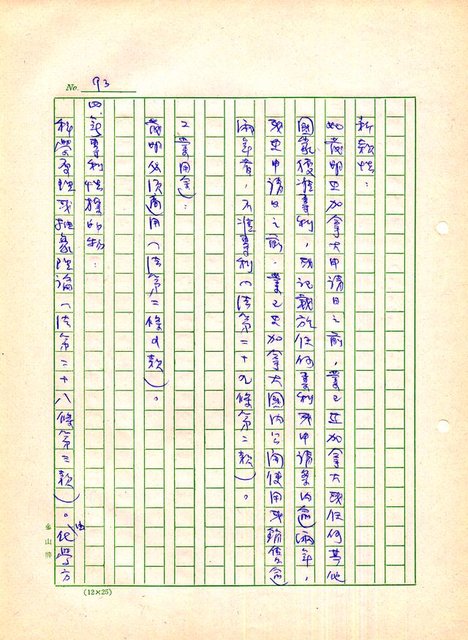 No. 93
新穎性：
如發明在加拿大申請日之前，業已在加拿大或任何其他
國家獲准專利，或記載於任何專利或申請案內逾兩年，
或在申請日之前，業已在加拿大國內公開使用或銷售逾
兩年者，不准專利（法第二十九條第二款）。
2 實用金：
發明必須商用（法第二條d款）。
四、無專利性權的物：
科學原理或抽象理論（法第二十八條第三款）。化學方法
金山牌
(12×25)